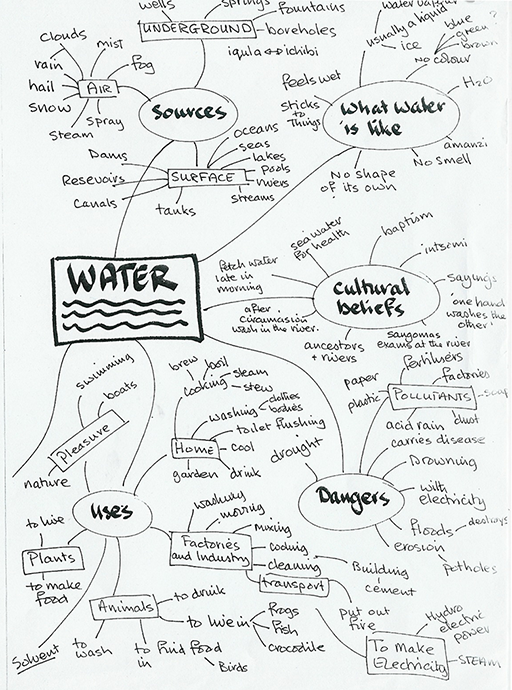 wells
springs
fountains
UNDERGROUND
boreholes
iqula ⇔ ichibi
clouds
mist
rain
fog
hail
AIR
snow
spray
steam
Sources
oceans
seas
lakes
pools
rivers
streams
SURFACE
Dams
Resevoirs
Canals
tanks
usually a liquid
ice
blue
green
brown
?
No colour
H2O
feels wet
sticks
to
Things
What water
is like
amanzi
No smell
No shape
of its own
WATER
sea water
for health
baptism
intsomi
sayings
'one hand
washes the
other'
fetch water
late in
morning
Cultural
beliefs
after
circumcision
wash in the river.
ancestors
+ rivers
sangomas
exams at the river
fertilisers
factories
paper
plastic
POLLUTANTS
soap
dust
acid rain
carries disease
Drowning
with
electricity
floods
destroys
erosion
potholes
drought
Dangers
swimming
boats
Pleasure
nature
uses
brew
boil
steam
cooking
stew
washing
clothes
bodies
toilet flushing
Home
cool
drink
garden
to live
Plants
to make
food
washing
moving
mixing
Factories
and Industry
cooling
cleaning
transport
Building
cement
put out
fire
Animals
to drink
to live in
frogs
fish
crocodile
to find food
in
Birds
to
wash
Solvent
To Make
Electricity
Hydro
electric
power
STEAM